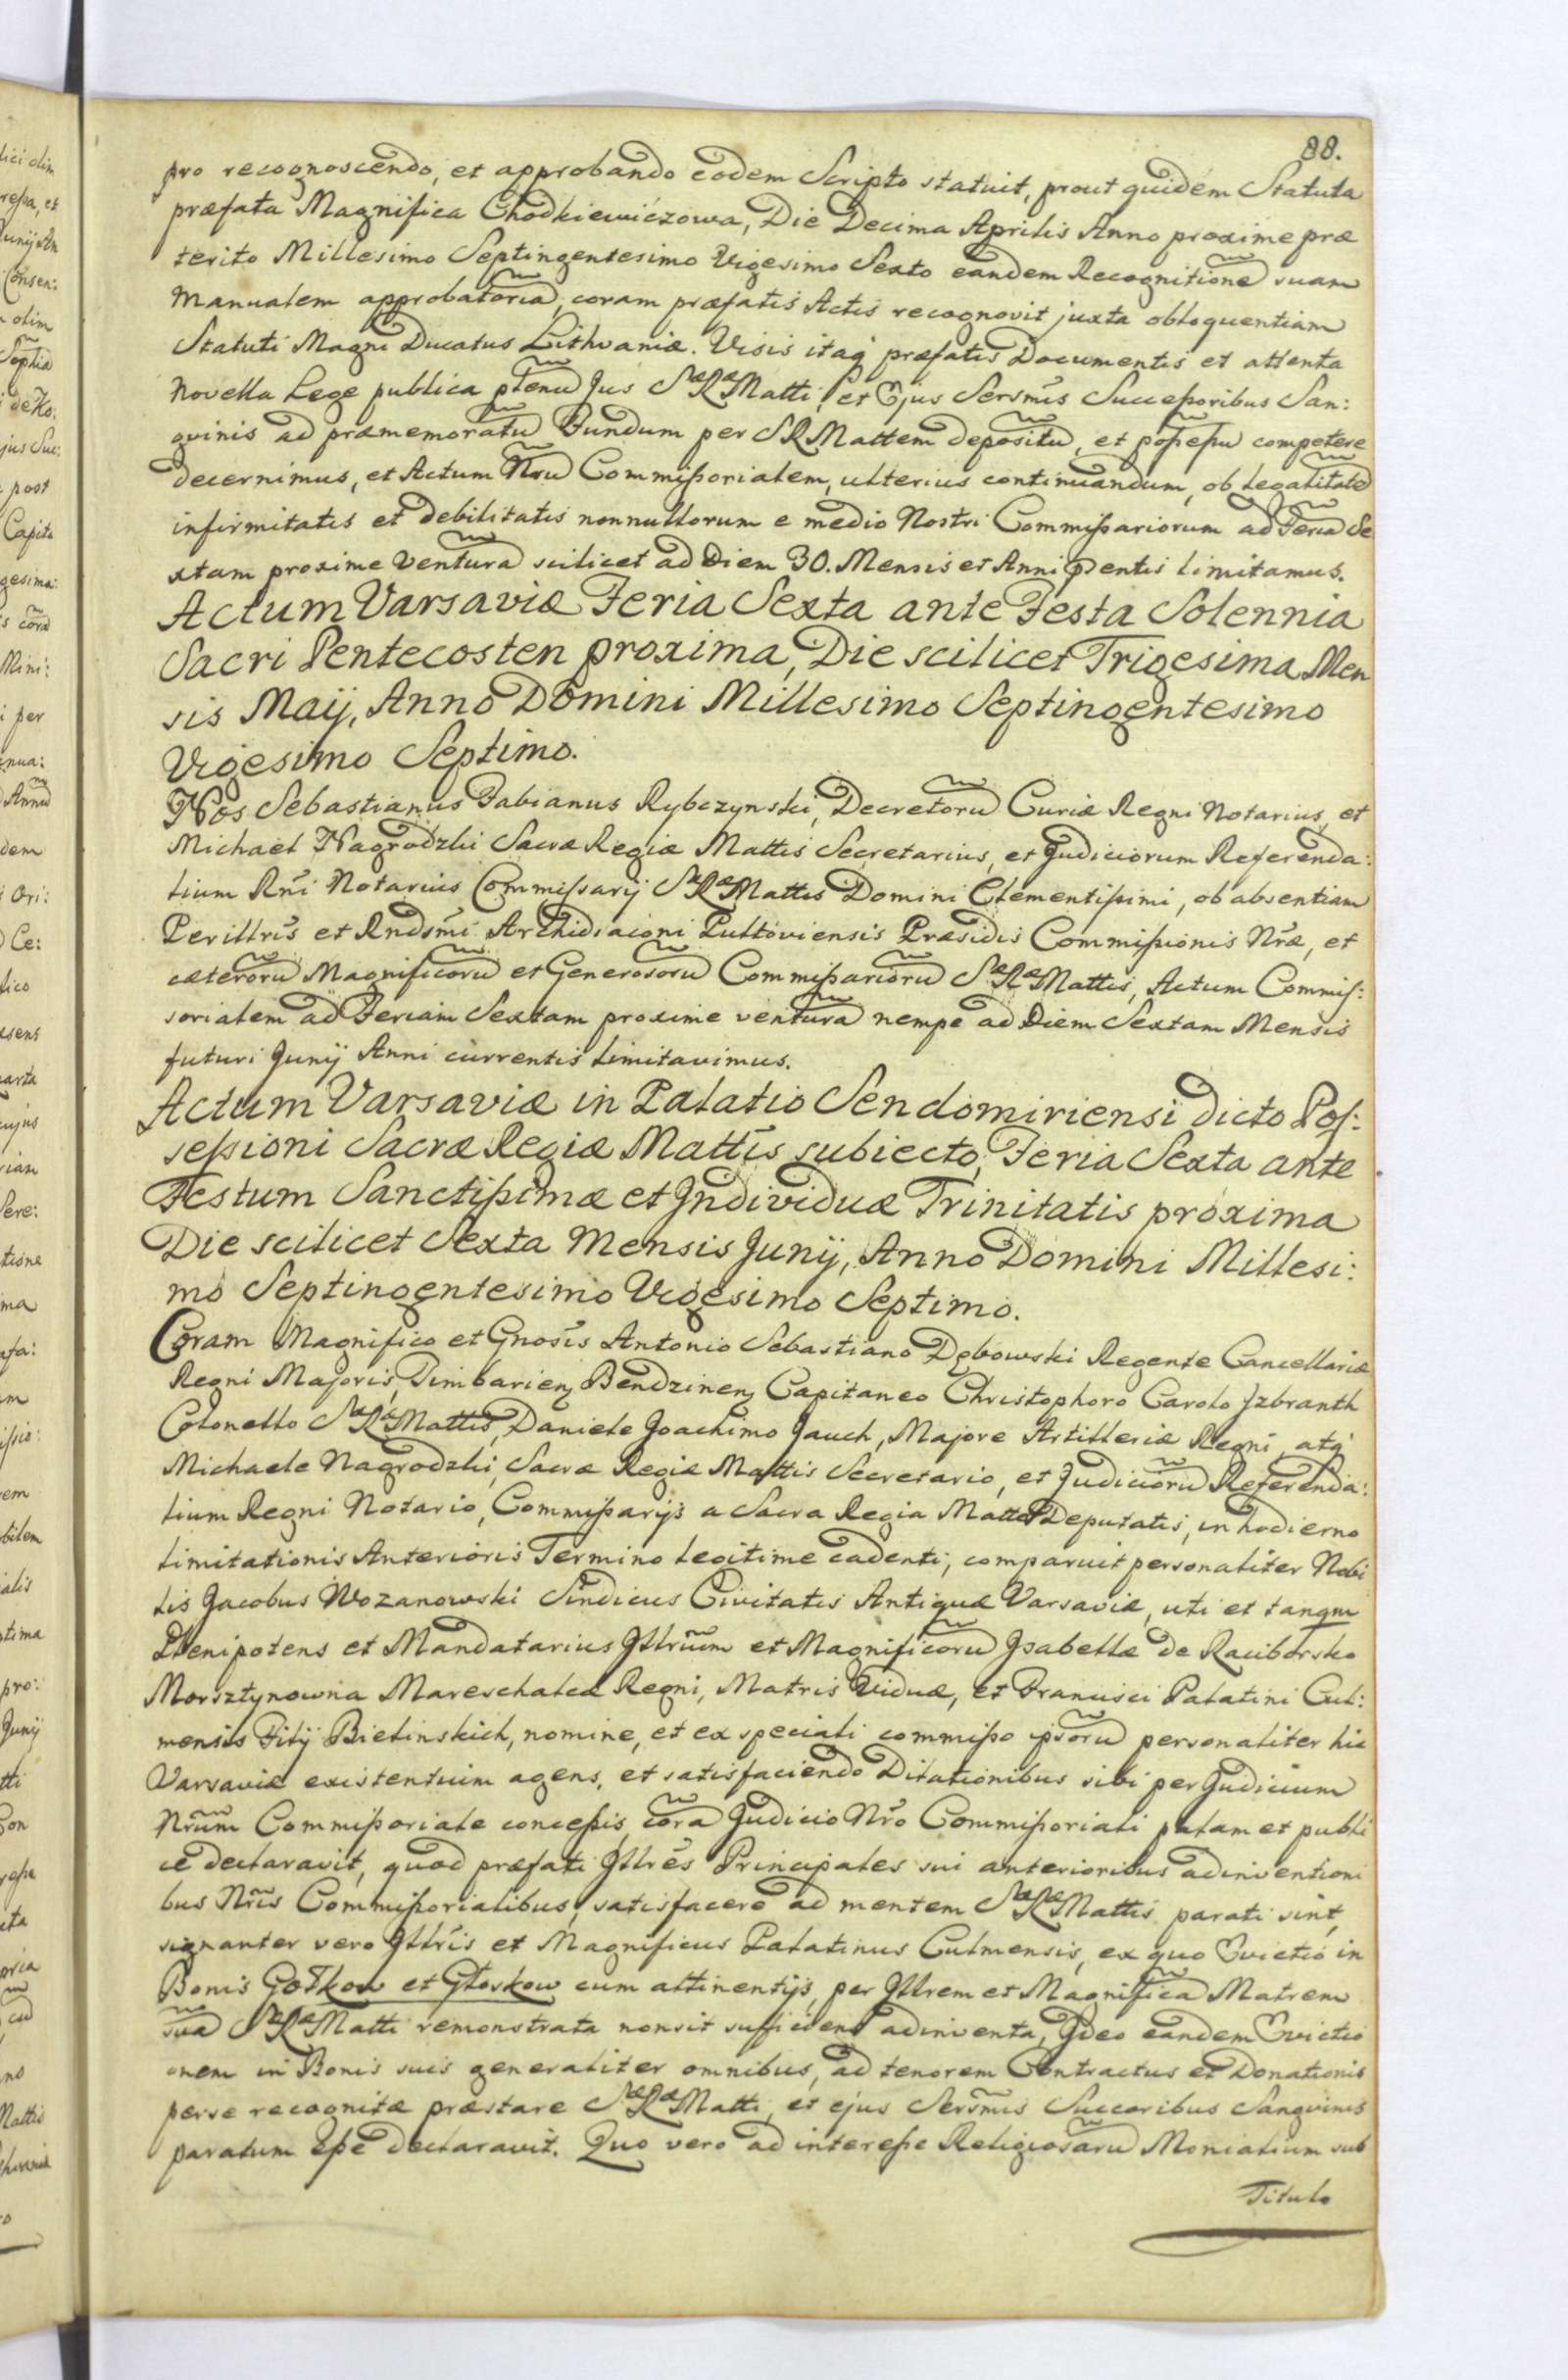 88.
pro recognoscendo, et approbando eodem Scripto statuit, prout quidem Statuta
præfata Magnifica Chodkiewiczowa, Die Decima Aprilis Anno proxime præ
terito Millesimo Septingentesimo Vigesimo Sexto eandem Recognitione suam
Manualem approbatoria, coram præfatis Actis recognovit juxta obloquentiam
Statuti Magni Ducatus Lithvaniæ. Visis itaq præfatis Documentis et attenta
Novella Lege publica plenu Jus SæRæMatti, et Ejus Sersmis Successoribus San:
gvinis ad præmemoratu Fundum per SRMattem depositu, et possessu competere
decernimus, et Actum Nru Commissorialem, ulterius continuandum, ob legalitate
infirmitatis et debilitatis nonnullorum e medio Nostri Commissariorum ad Feria Se
xtam proxime Ventura scilicet ad Diem 30. Mensis et Anni pentis limitamus.
Actum Varsaviæ Feria Sexta ante Festa Solennia
Sacri Pentecosten proxima, Die scilicet Trigesima Men
sis Maij, Anno Domini Millesimo Septingentesimo
Vigesimo Septimo.
Nos Sebastianus Fabianus Rybczynski, Decretoru Curiæ Regni Notarius, et
Michael Nagrodzki Sacræ Regiæ Mattis Secretarius, et Judiciorum Referenda:
lium Rni Notarius Commissarij SæRæMattis Domini Clementissimi, ob absentiam
Perillris et Rndsmi Archidiaconi Pultoviensis Præsidis Commissionis Nræ, et
cæteroru Magnificoru et Generosoru Commissarioru SæRæMattis, Actum Commis:
sorialem ad Feriam Sextam proxime ventura nempe ad Diem Sextam Mensis
futuri Junij Anni currentis limitavimus.
Actum Varsaviæ in Palatio Sendomiriensi dicto Pos:
sessioni Sacræ Regiæ Mattis subiecto, Feria Sexta ante
Festum Sanctissimæ et Individuæ Trinitatis proxima
Die scilicet Sexta Mensis Junij, Anno Domini Millesi:
mo Septingentesimo Vigesimo Septimo.
Coram Magnifico et Gnosis Antonio Sebastiano Dębowski Regente Cancellariæ
Regni Majoris, Timbarien Bendzinen Capitaneo Christophoro Carolo Jzbranth
Colonello SæRæMattis, Daniele Joachimo Jauch, Majore Artilleriæ Regni, atq
Michaele Nagrodzki, Sacræ Regiæ Mattis Secretario, et Judicioru Referenda:
lium Regni Notario, Commissarijs a Sacra Regia Matte Deputatis, in hodierno
limitationis Anterioris Termino legitime cadenti, comparuit personaliter Nobi
lis Jacobus Wozanowski Sindicus Civitatis Antiquæ Varsaviæ, uti et tanqm
Plenipotens et Mandatarius Jllrium et Magnificoru Jsabellæ de Raciborsko
Morsztynowna Mareschalca Regni, Matris Viduæ, et Francisci Palatini Cul:
mensis Filij Bielinskich, nomine, et ex speciali commisso ipsoru personaliter hic
Varsaviæ existentium agens, et satisfaciendo Dilationibus sibi per Judicium
Nrum Commissoriale concessis, cora Judicio Nro Commissoriali palam et publi
ce declaravit, quod præfati Jllres Principales sui anterioribus adinventioni
bus Nris Commissorialibus, satisfacere ad mentem SæRæMattis parati sint,
signanter vero Jllris et Magnificus Palatinus Culmensis, ex quo Evictio in
Bonis Gołkow et Głoskow cum attinentijs, per Jllrem et Magnifica Matrem
sua SæRæMatti remonstrata non sit sufficiens adinventa, Ideo eandem Evictio
onem in Bonis suis generaliter omnibus, ad tenorem Contractus et Donationis
per se recognitæ præstare SæRæMatti, et ejus Sersmis Succoribus Sangvinis
paratum Esse declaravit. Quo vero ad interesse Religiosaru Monialium sub
Titulo